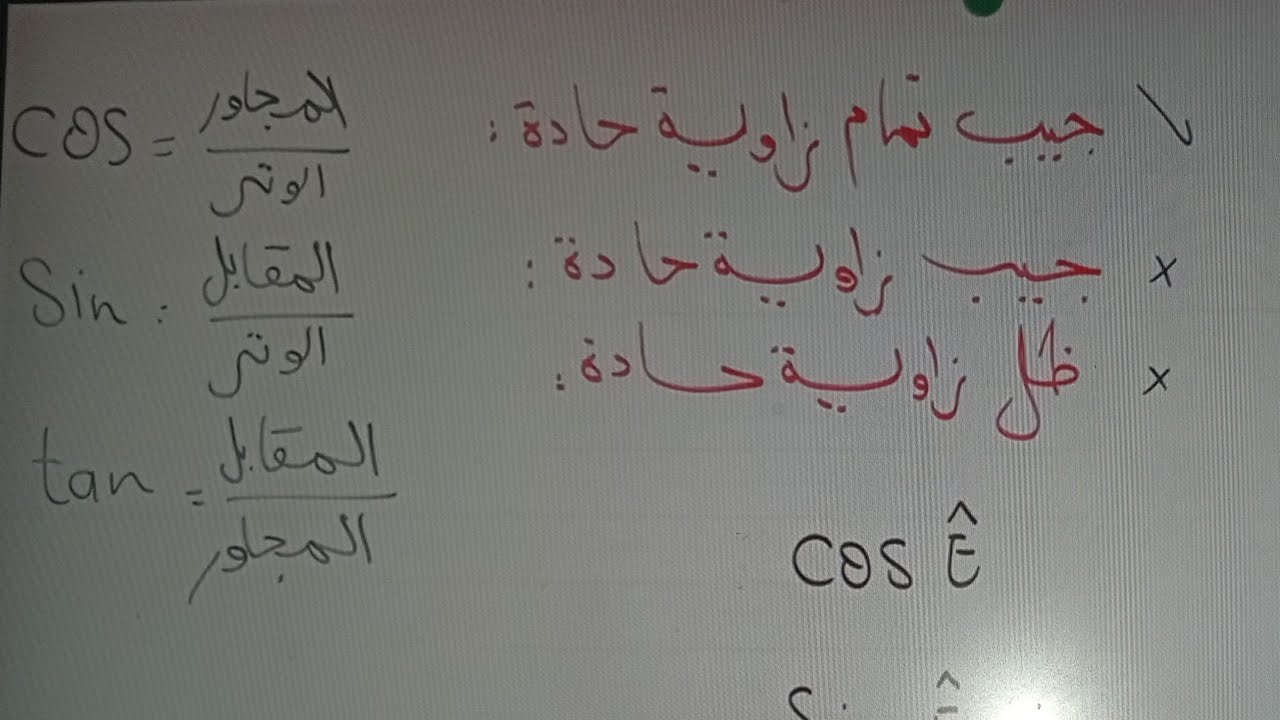 جيب تمام زاوية حادة :
جيب زاوية حادة :
ظل زاوية حادة :
COS = المجاور
الوتر
Sin : المقابل
الوتر
tan = المقابل
المجاور
COS Ê